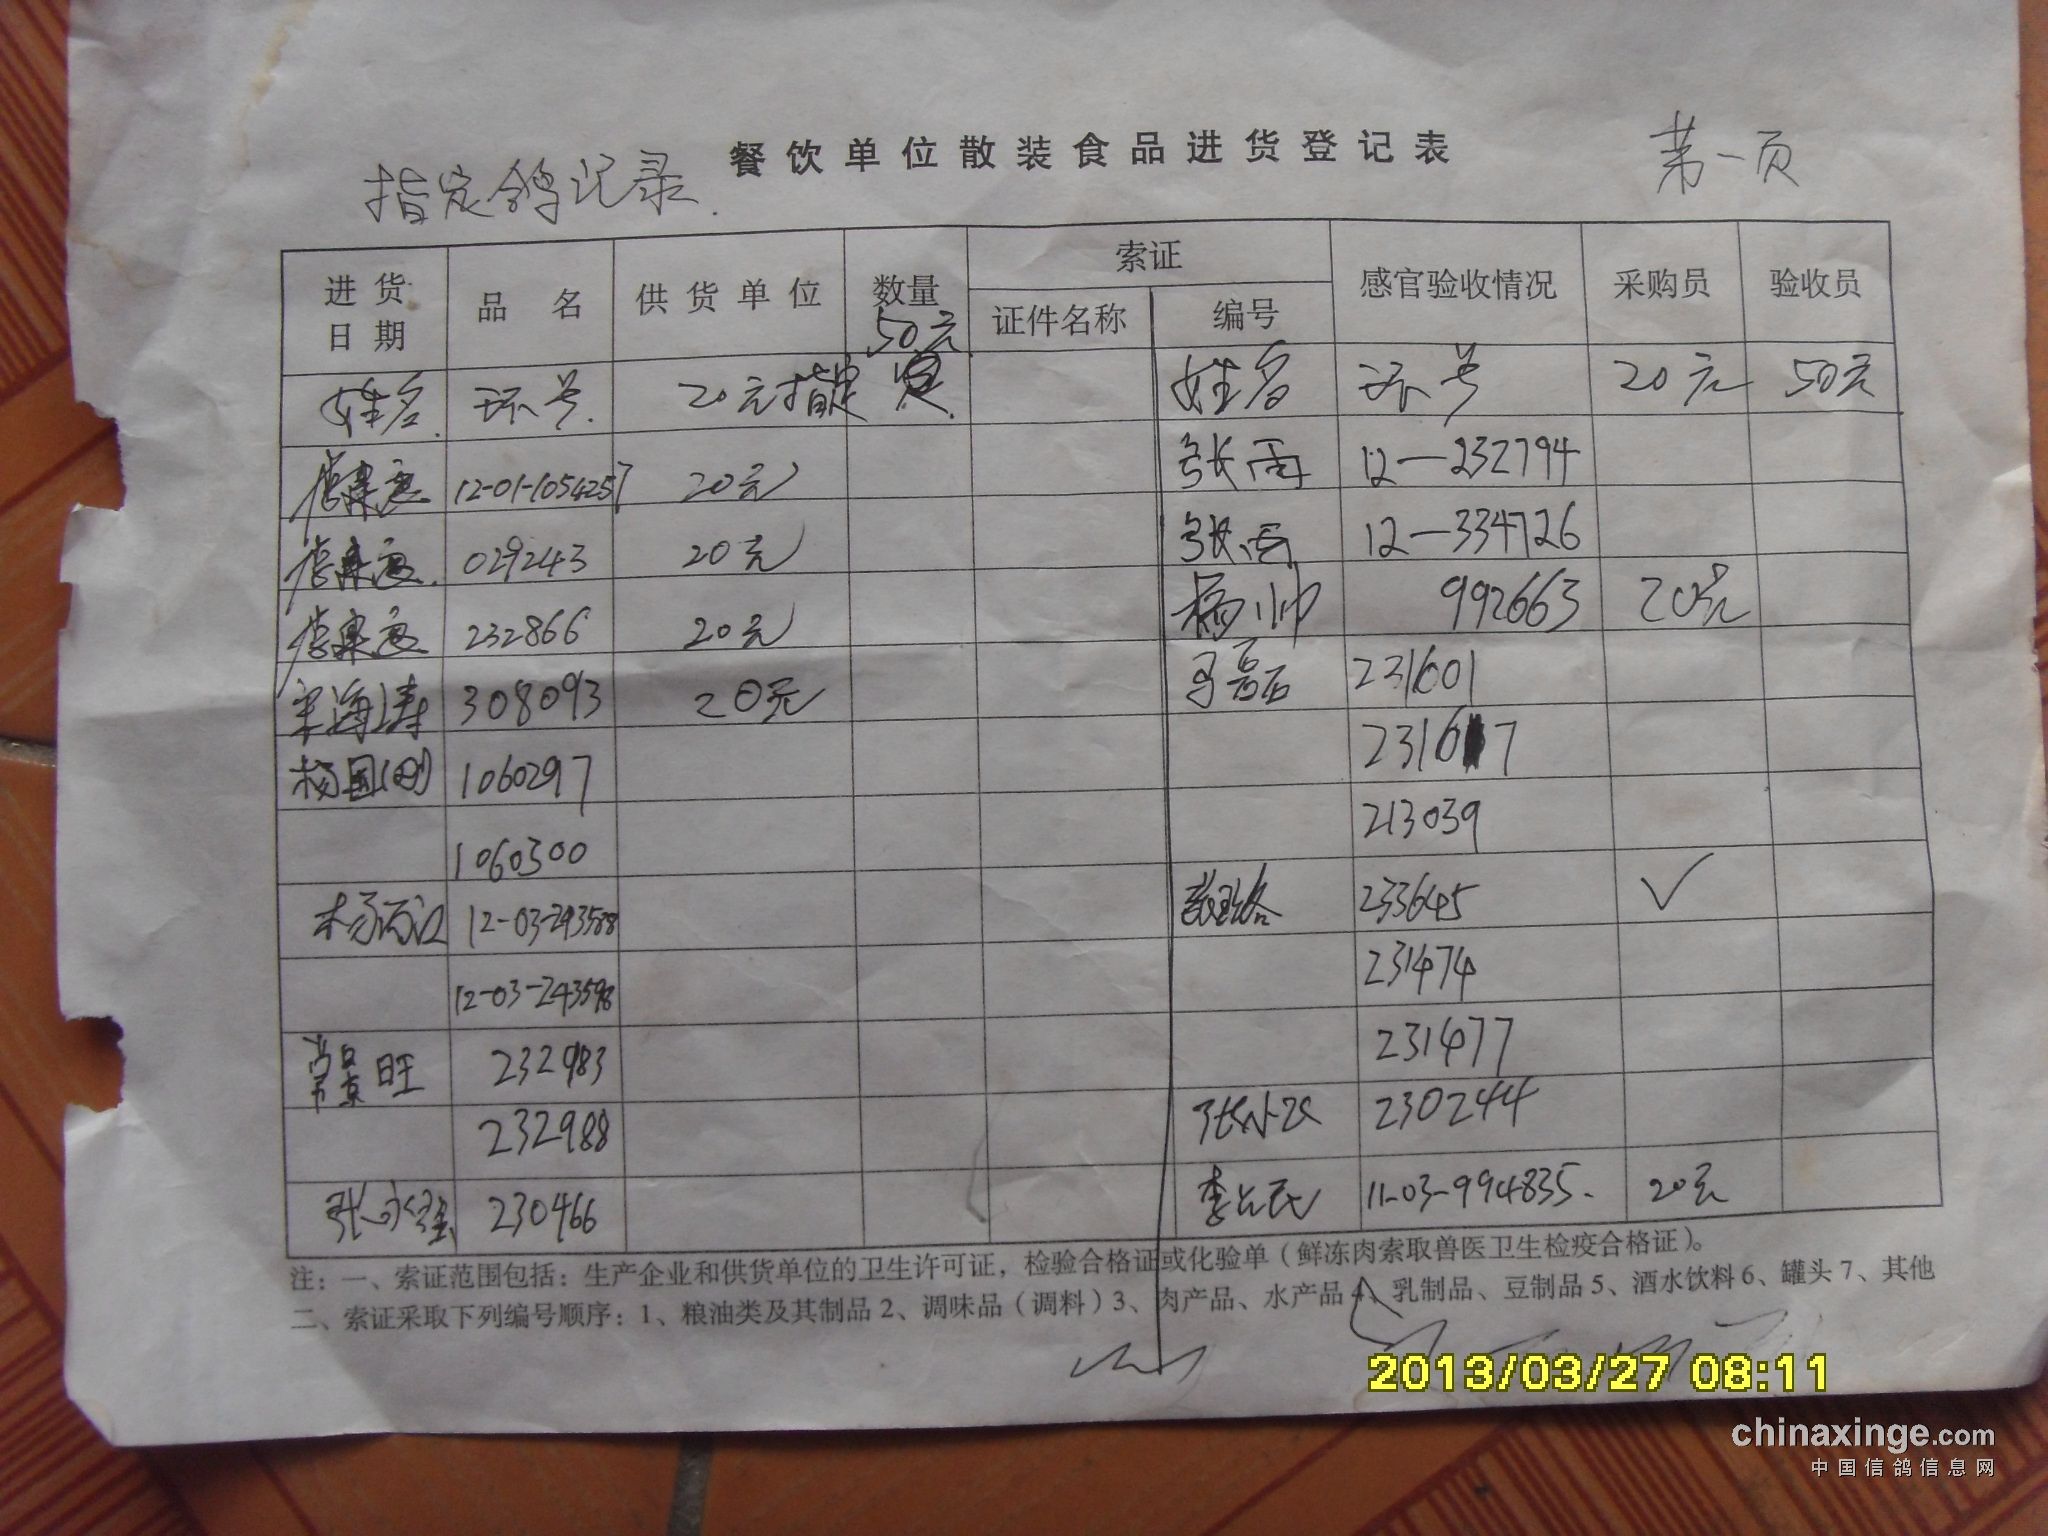 餐饮单位散装食品进货登记表
指定鸽记录.
第一页
进货日期 品名 供货单位 数量 索证 感官验收情况 采购员 验收员
证件名称 编号
50元
姓名. 环号. 20元指定 姓名 环号 20元 50元
12-01-1054257 20元 张雨 12—232794
029243 20元 张雨 12—334726
232866 20元 杨帅 992663 20元
宋海涛 308093 20元 马磊 231601
杨国(刚) 1060297 2316 7
1060300 213039
12-03-243588 233645 ✓
12-03-243598 231474
常景旺 232983 231477
232988 张小 230244
张永 230466 李 民 11-03-994835. 20元
注：一、索证范围包括：生产企业和供货单位的卫生许可证，检验合格证或化验单（鲜冻肉索取兽医卫生检疫合格证）。
二、索证采取下列编号顺序：1、粮油类及其制品2、调味品（调料）3、肉产品、水产品4、乳制品、豆制品5、酒水饮料6、罐头7、其他
2013/03/27 08:11
chinaxinge.com
中国信鸽信息网